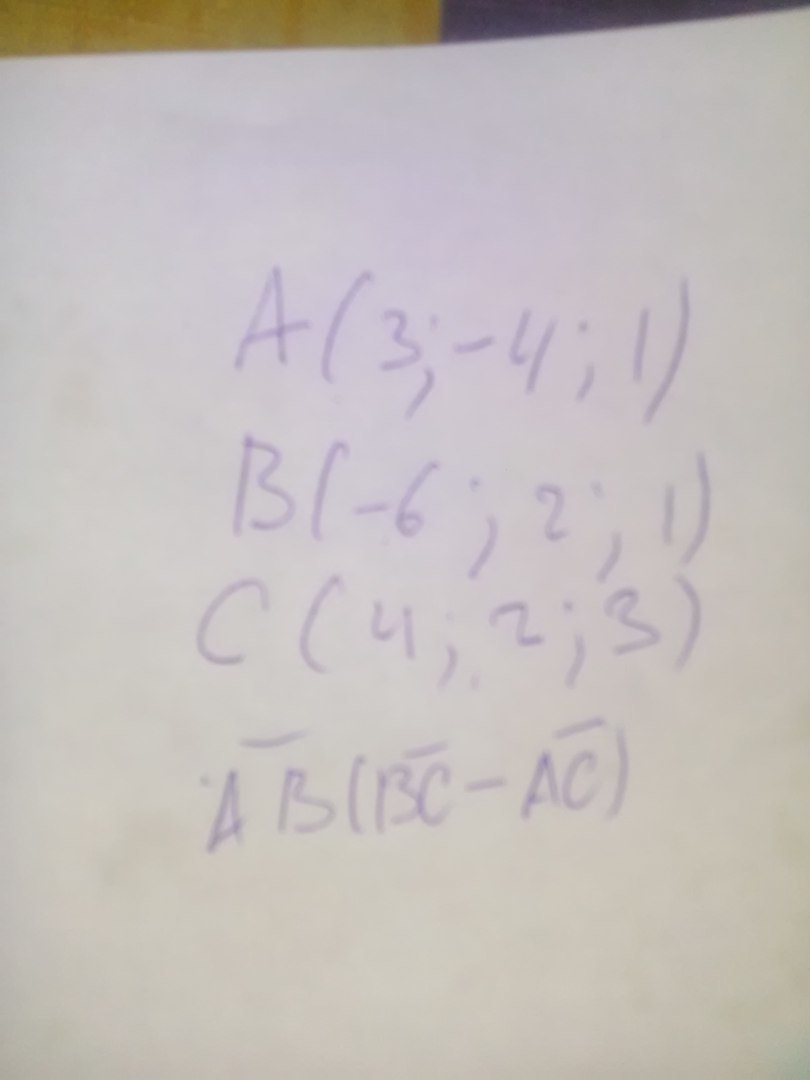 A(3;-4;1)
B(-6;2;1)
C(4;2;3)
A̅B̅(B̅C̅-A̅C̅)